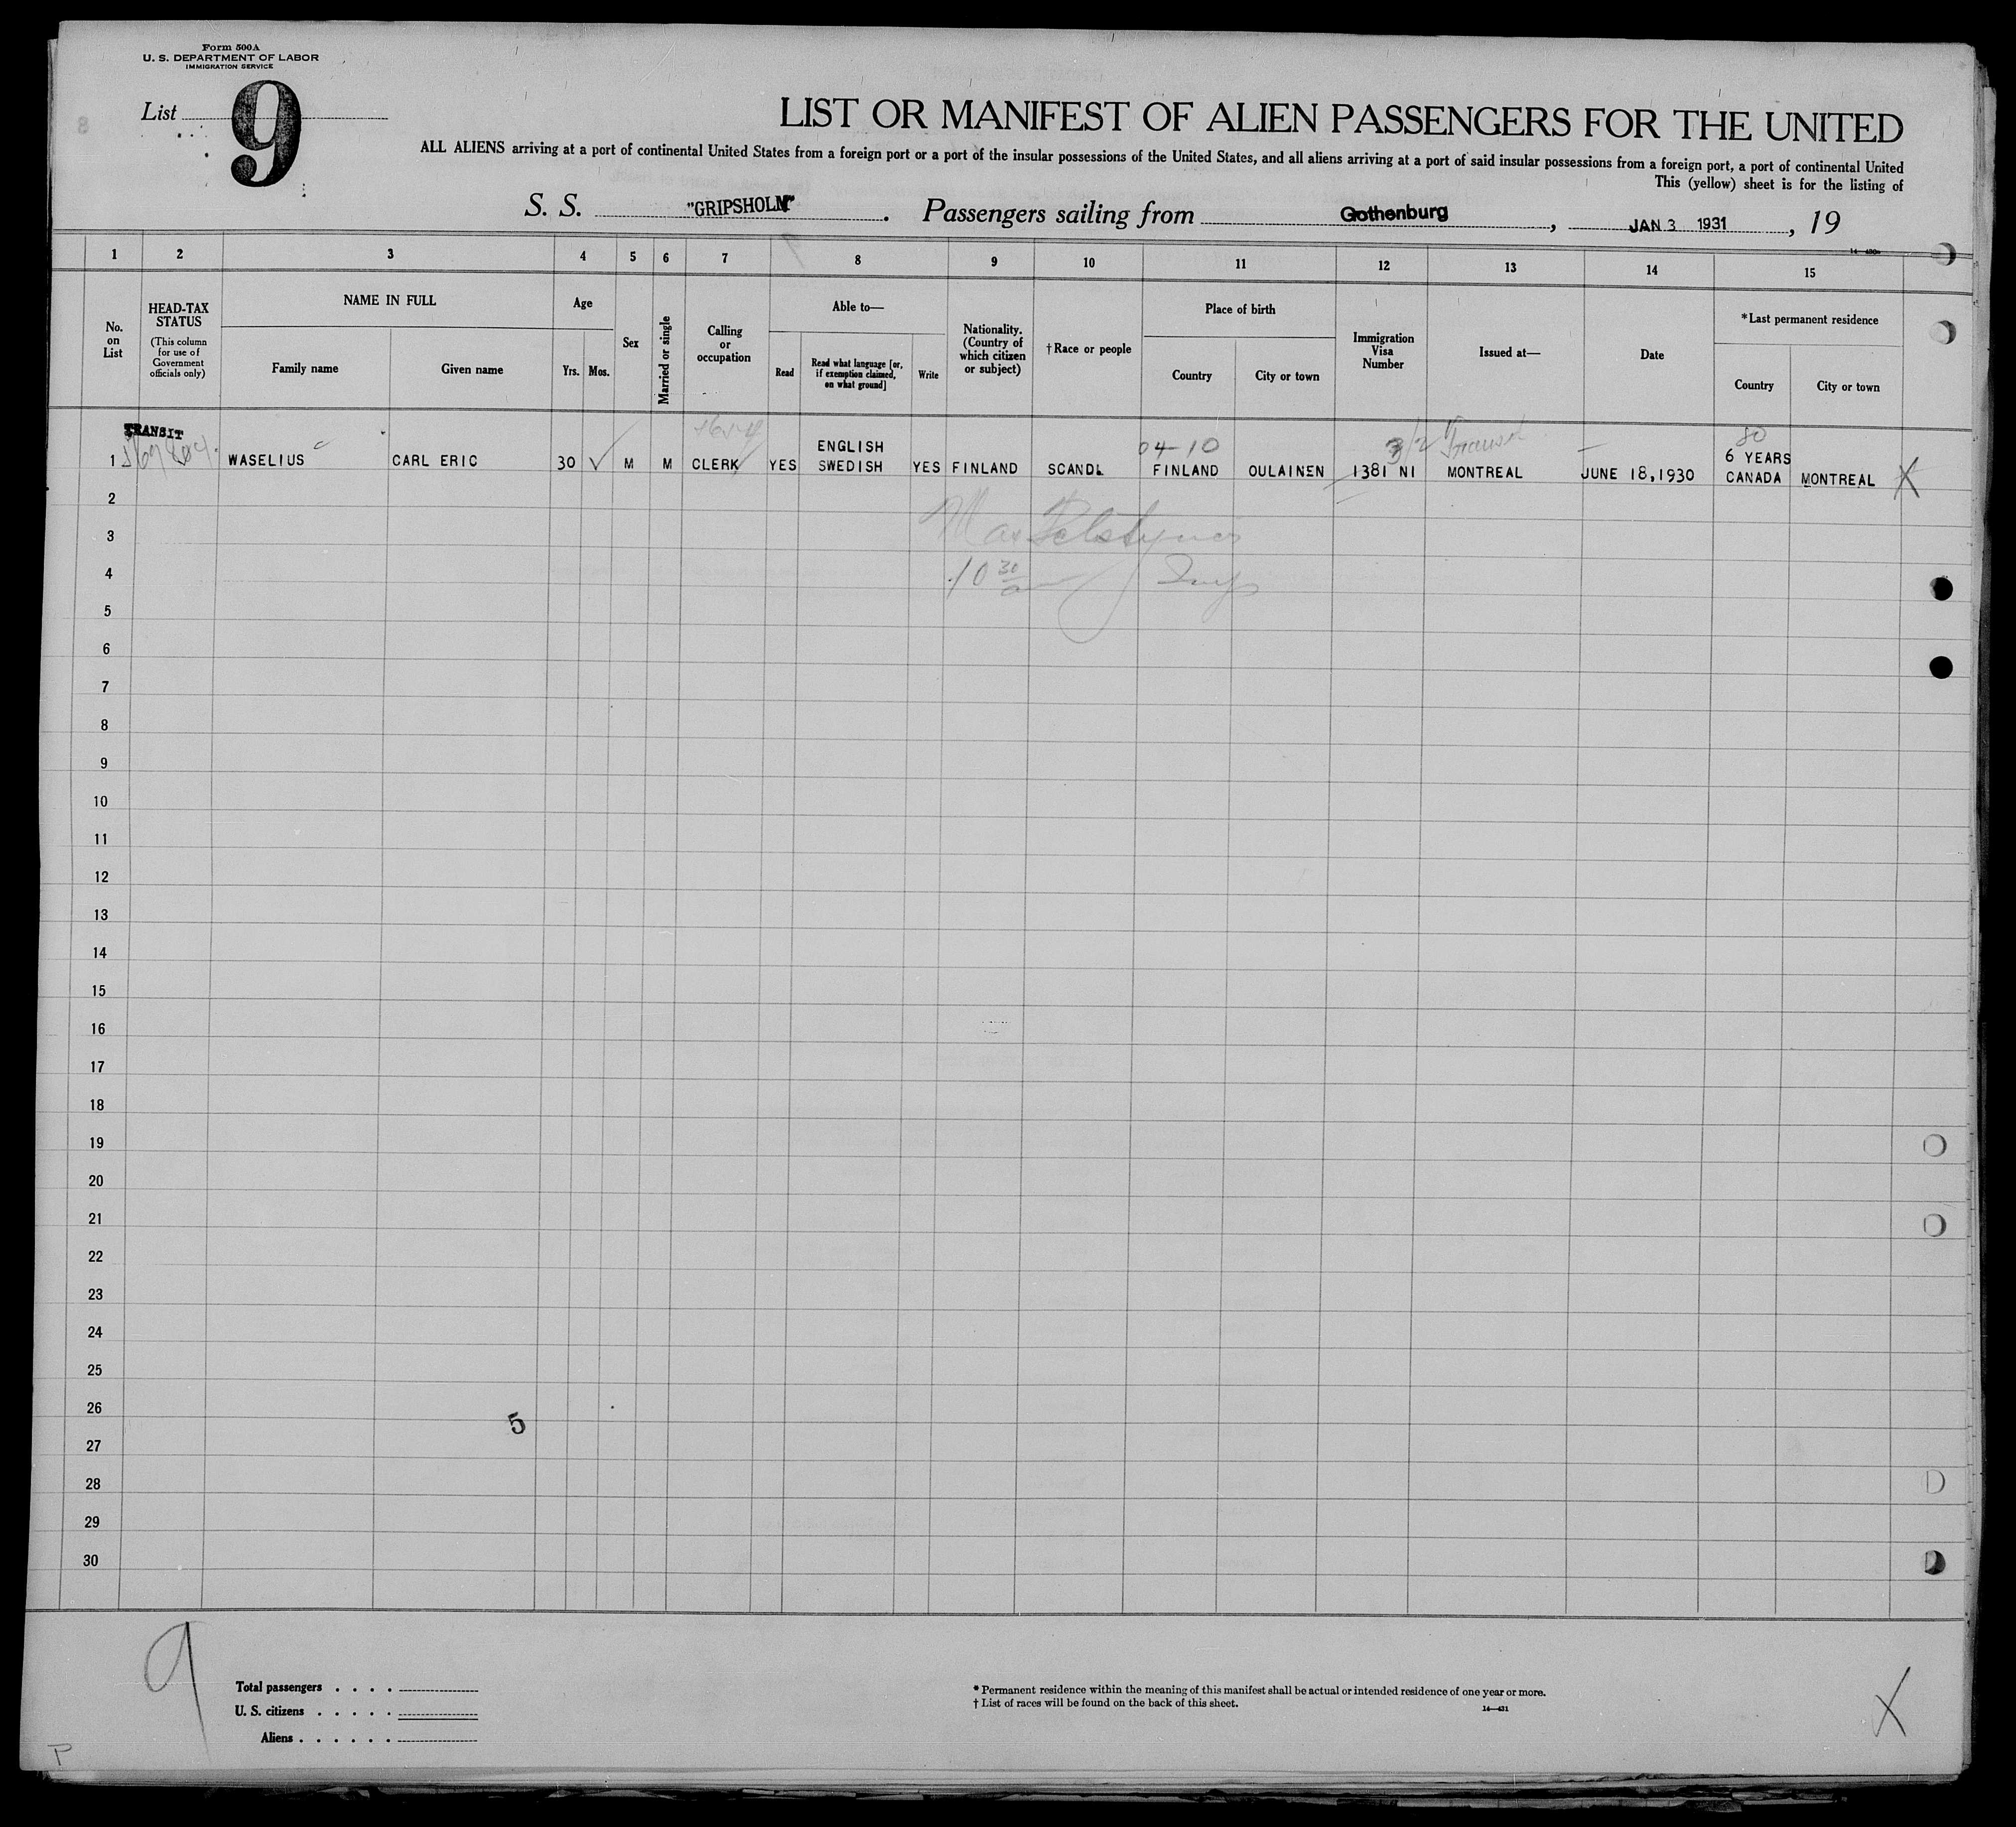 Form 500A
U. S. DEPARTMENT OF LABOR
IMMIGRATION SERVICE
List 9
LIST OR MANIFEST OF ALIEN PASSENGERS FOR THE UNITED
ALL ALIENS arriving at a port of continental United States from a foreign port or a port of the insular possessions of the United States, and all aliens arriving at a port of said insular possessions from a foreign port, a port of continental United
This (yellow) sheet is for the listing of
S. S. "GRIPSHOLM". Passengers sailing from Gothenburg, JAN 3 1931, 19
1 2 3 4 5 6 7 8 9 10 11 12 13 14 15
No. on List
HEAD-TAX STATUS
(This column for use of Government officials only)
NAME IN FULL
Family name
Given name
Age
Yrs.
Mos.
Sex
Married or single
Calling or occupation
Able to—
Read
Read what language [or, if exemption claimed, on what ground]
Write
Nationality. (Country of which citizen or subject)
†Race or people
Place of birth
Country
City or town
Immigration Visa Number
Issued at—
Date
*Last permanent residence
Country
City or town
TRANSIT
ENGLISH 04-10 80
6 YEARS
1 WASELIUS CARL ERIC 30 M M CLERK YES SWEDISH YES FINLAND SCANDL FINLAND OULAINEN 1381 NI MONTREAL JUNE 18,1930 CANADA MONTREAL X
2
3
4 10 30
5
6
7
8
9
10
11
12
13
14
15
16
17
18
19
20
21
22
23
24
25
26
5
27
28
29
30
9
Total passengers . . . .
U. S. citizens . . . . .
Aliens . . . . . .
* Permanent residence within the meaning of this manifest shall be actual or intended residence of one year or more.
† List of races will be found on the back of this sheet.
14—431
X